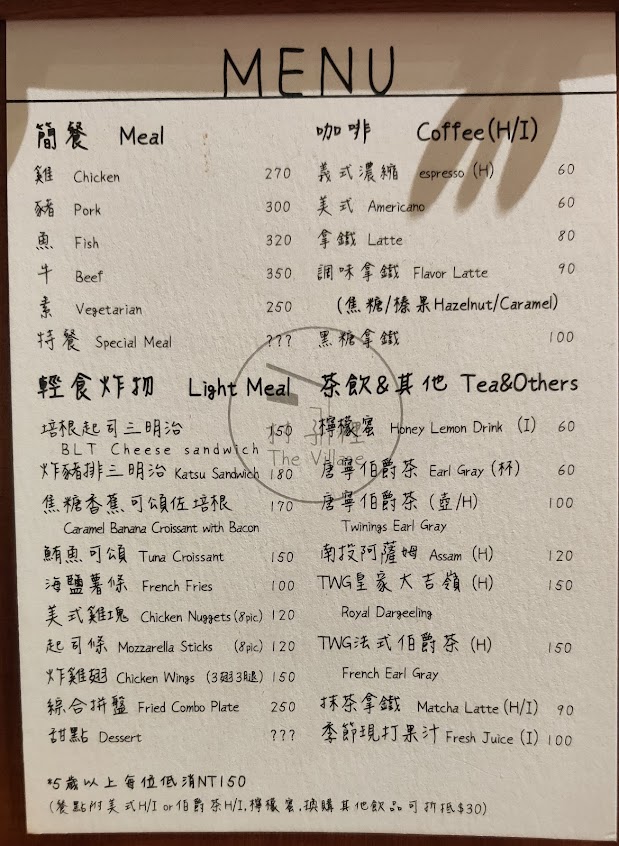 MENU
簡餐 Meal
雞 Chicken 270
豬 Pork 300
魚 Fish 320
牛 Beef 350
素 Vegetarian 250
特餐 Special Meal ???
輕食炸物 Light Meal
培根起司三明治 150
BLT Cheese sandwich
炸豬排三明治 Katsu Sandwich 180
焦糖香蕉可頌佐培根 170
Caramel Banana Croissant with Bacon
鮪魚可頌 Tuna Croissant 150
海鹽薯條 French Fries 100
美式雞塊 Chicken Nuggets (8pic) 120
起司條 Mozzarella Sticks (8pic) 120
炸雞翅 Chicken Wings (3翅3腿) 150
綜合拼盤 Fried Combo Plate 250
甜點 Dessert ???
咖啡 Coffee(H/I)
義式濃縮 espresso (H) 60
美式 Americano 60
拿鐵 Latte 80
調味拿鐵 Flavor Latte 90
(焦糖/榛果Hazelnut/Caramel)
黑糖拿鐵 100
茶飲&其他 Tea&Others
檸檬蜜 Honey Lemon Drink (I) 60
唐寧伯爵茶 Earl Gray (杯) 60
唐寧伯爵茶 (壺/H) 100
Twinings Earl Gray
南投阿薩姆 Assam (H) 120
TWG皇家大吉嶺 (H) 150
Royal Dargeeling
TWG法式伯爵茶 (H) 150
French Earl Gray
抹茶拿鐵 Matcha Latte (H/I) 90
季節現打果汁 Fresh Juice (I) 100
The Village
*5歲以上每位低消NT150
(餐點附美式H/I or 伯爵茶H/I,檸檬蜜,換購其他飲品可折抵$30)